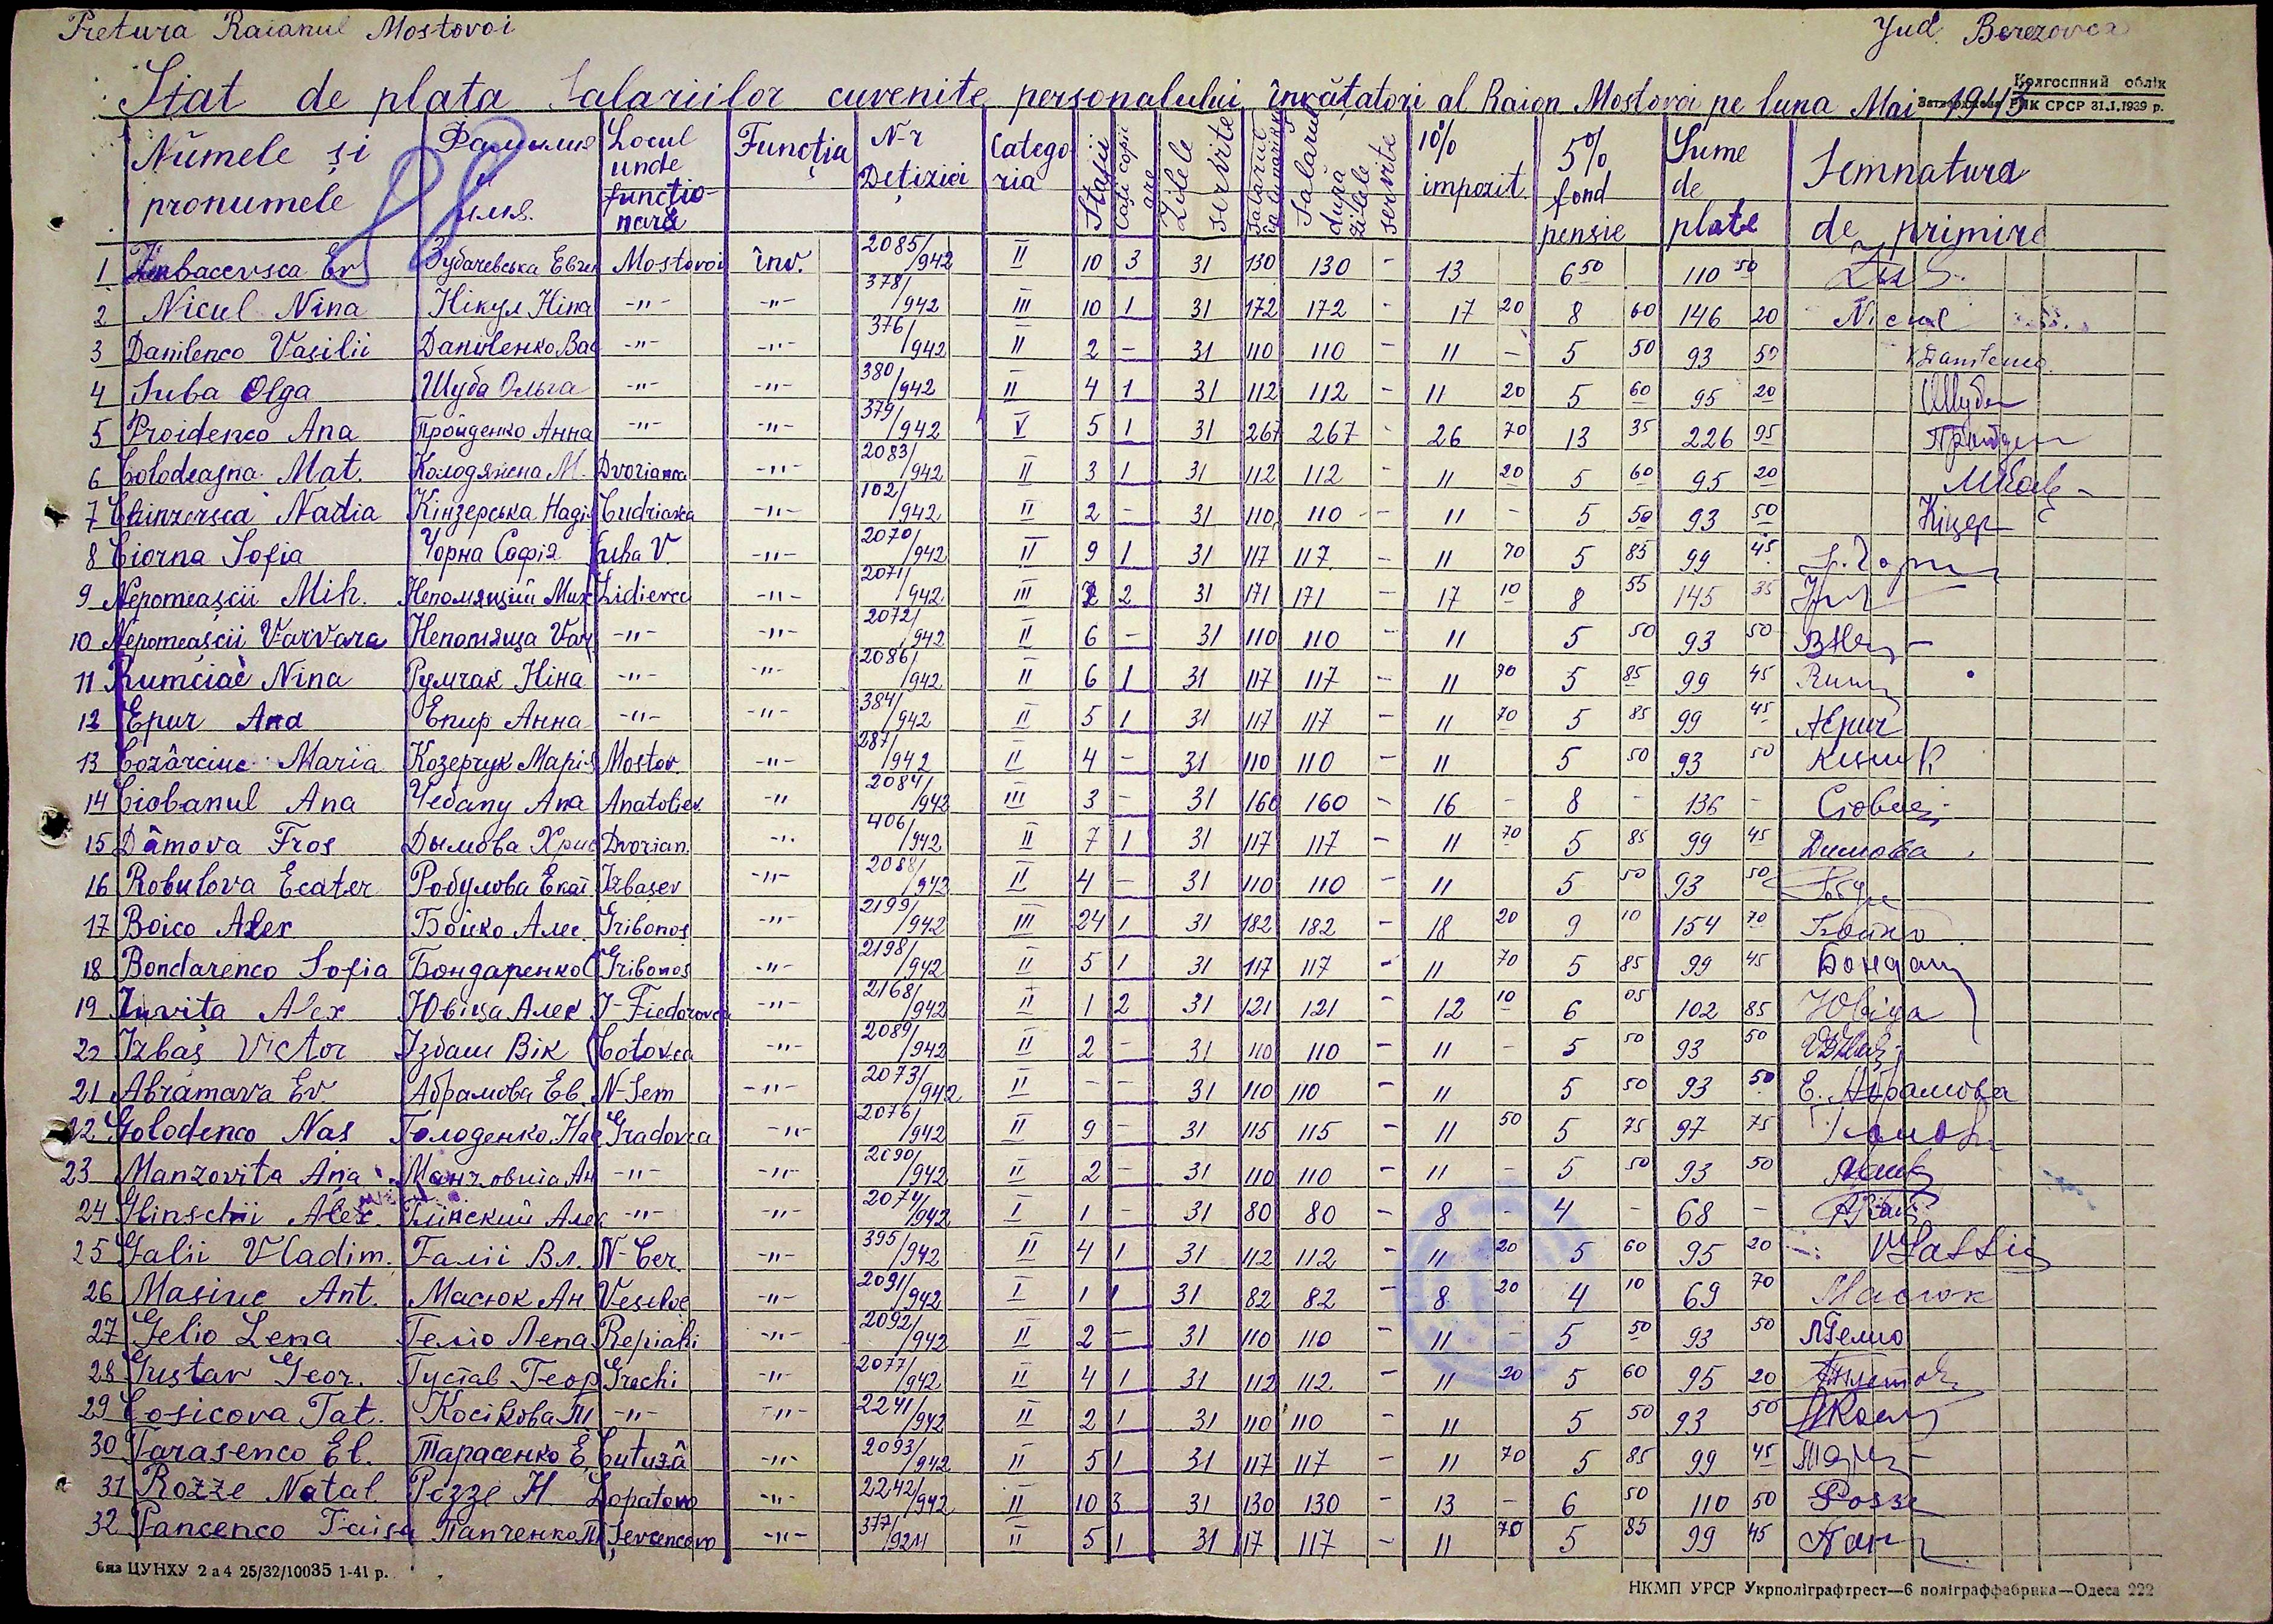 Pretura Raianul Mostovoi
Jud. Berezovca
Колгоспний облік
Stat de plata Salariilor cuvenite personalului învățatori al Raion Mostovoi pe luna Mai 1943
РНК СРСР 31.I.1939 р.
Numele și pronumele | Фамилия и имя. | Locul unde funcționară | Funcția | N-r Detiziei | Categoria | Stajii | Cați copii are | Zilele servite | Salariul | Salarul după zilele servite | 10% impozit | 5% fond pensie | Sume de plate | Semnatura de primire
88
1 Zubacevsca Ev Зубачевська Евген Mostovoi înv. 2085/942 II 10 3 31 130 130 - 13 6 50 110 50
2 Nicul Nina Нікул Ніна -"- -"- 378/942 III 10 1 31 172 172 - 17 20 8 60 146 20 Nicul
3 Danilenco Vasilii Даниленко Вас -"- -"- 376/942 II 2 - 31 110 110 - 11 - 5 50 93 50
4 Suba Olga Шуба Ольга -"- -"- 380/942 II 4 1 31 112 112 - 11 20 5 60 95 20 Шуба
5 Proidenco Ana Пройденко Анна -"- -"- 379/942 V 5 1 31 267 267 - 26 70 13 35 226 95
6 Colodeajna Mat. Колодяжна М. Dvorianca -"- 2083/942 II 3 1 31 112 112 - 11 20 5 60 95 20
7 Chinzersca Nadia Кінзерська Надія Cudriavca -"- 102/942 II 2 - 31 110 110 - 11 - 5 50 93 50
8 Ciorna Sofia Чорна Софія Iuha V. -"- 2070/942 II 9 1 31 117 117 - 11 70 5 85 99 45
9 Nepomeașcii Mih. Непомящий Мих Lidievca -"- 2071/942 III 2 2 31 171 171 - 17 10 8 55 145 35
10 Nepomeașcii Varvara Непомяща Вар -"- -"- 2072/942 II 6 - 31 110 110 - 11 5 50 93 50
11 Rumciac Nina Румчак Ніна -"- -"- 2086/942 II 6 1 31 117 117 - 11 70 5 85 99 45
12 Epur Ana Епур Анна -"- -"- 384/942 II 5 1 31 117 117 - 11 70 5 85 99 45 AEpur
13 Cozârciuc Maria Козерчук Марія Mostov. -"- 287/942 II 4 - 31 110 110 - 11 5 50 93 50
14 Ciobanul Ana Чебану Ана Anatoliev -"- 2084/942 III 3 - 31 160 160 - 16 - 8 - 136 -
15 Dâmova Fros Дымова Хрис Dvorian. -"- 406/942 II 7 1 31 117 117 - 11 70 5 85 99 45 Димова
16 Robulova Ecater Робулова Екат Izbașev -"- 2088/942 II 4 - 31 110 110 - 11 5 50 93 50
17 Boico Alex Бойко Алес. Gribonos -"- 2199/942 III 24 1 31 182 182 - 18 20 9 10 154 70 Бойко
18 Bondarenco Sofia Бондаренко С Gribonos -"- 2198/942 II 5 1 31 117 117 - 11 70 5 85 99 45
19 Iuvița Alex Ювіца Алек I-Fiedorovca -"- 2168/942 II 1 2 31 121 121 - 12 10 6 05 102 85 Ювіца
20 Izbaș Victor Ізбаш Вік Cotovca -"- 2089/942 II 2 - 31 110 110 - 11 - 5 50 93 50
21 Abramava Ev. Абрамова Ев. N-Sem -"- 2073/942 II - - 31 110 110 - 11 5 50 93 50 Е. Абрамова
22 Golodenco Nas Голоденко Нас Gradovca -"- 2076/942 II 9 - 31 115 115 - 11 50 5 75 97 75
23 Manzovita Ana Манзовита Ан -"- -"- 2090/942 II 2 - 31 110 110 - 11 - 5 50 93 50
24 Glinschii Alex. Глінский Алек -"- -"- 2074/942 I 1 - 31 80 80 - 8 - 4 - 68 -
25 Galii Vladim. Галіі Вл. N-Cer. -"- 395/942 II 4 1 31 112 112 - 11 20 5 60 95 20
26 Masiuc Ant. Масюк Ан Veseloe -"- 2091/942 I 1 1 31 82 82 - 8 20 4 10 69 70 Масюк
27 Gelio Lena Геліо Лена Repiahi -"- 2092/942 II 2 - 31 110 110 - 11 - 5 50 93 50 ЛГелио
28 Gustav Geor. Густав Геор Grechi -"- 2077/942 II 4 1 31 112 112 - 11 20 5 60 95 20
29 Cosicova Tat. Косікова Т -"- -"- 2241/942 II 2 1 31 110 110 - 11 5 50 93 50
30 Tarasenco El. Тарасенко Е Cutuzâ -"- 2093/942 II 5 1 31 117 117 - 11 70 5 85 99 45
31 Rozze Natal Роззе Н. Lopatovo -"- 2242/942 II 10 3 31 130 130 - 13 - 6 50 110 50
32 Pancenco Taisa Панченко Т Șevcencovo -"- 377/9211 II 5 1 31 117 117 - 11 70 5 85 99 45
ЦУНХУ 2 а4 25/32/10035 1-41 р.
НКМП УРСР Укрполіграфтрест—6 поліграффабрика—Одеса 222